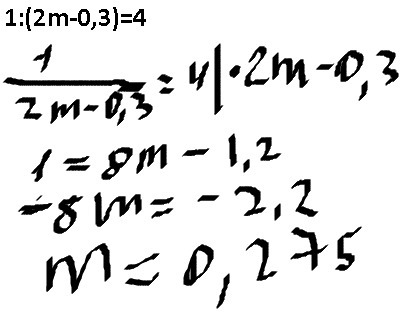 1:(2m-0,3)=4
1/(2m-0,3) = 4 | • 2m-0,3
1 = 8m - 1,2
-8m = -2,2
m = 0,275